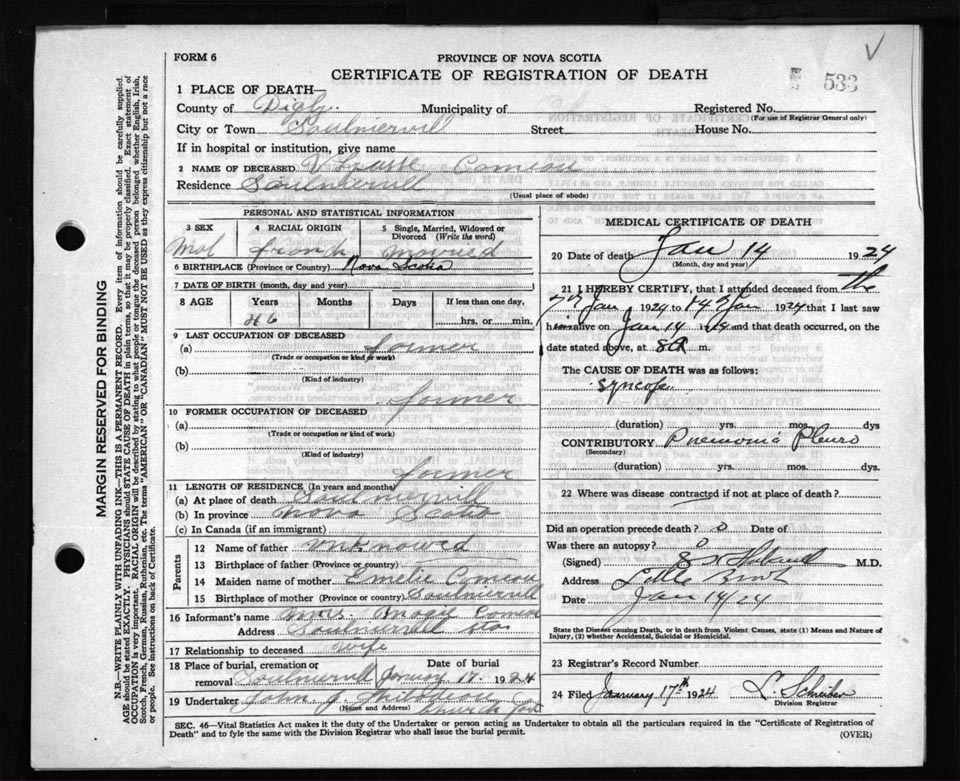 FORM 6
PROVINCE OF NOVA SCOTIA
CERTIFICATE OF REGISTRATION OF DEATH
533
1 PLACE OF DEATH—
County of Digby. Municipality of Registered No.
(For use of Registrar General only)
City or Town Saulniervill Street: House No.
If in hospital or institution, give name
2 NAME OF DECEASED Comeau
Residence Saulniervill
(Usual place of abode)
PERSONAL AND STATISTICAL INFORMATION
3 SEX 4 RACIAL ORIGIN 5 Single, Married, Widowed or Divorced (Write the word)
Mal french Married
6 BIRTHPLACE (Province or Country) Nova Scotia
7 DATE OF BIRTH (month, day and year)
8 AGE Years Months Days If less than one day,
46 hrs. or min.
9 LAST OCCUPATION OF DECEASED
(a) farmer
(Trade or occupation or kind of work)
(b)
(Kind of industry)
farmer
10 FORMER OCCUPATION OF DECEASED
(a)
(Trade or occupation or kind of work)
(b)
(Kind of industry)
farmer
11 LENGTH OF RESIDENCE (In years and months)
(a) At place of death Saulniervill
(b) In province Nova Scotia
(c) In Canada (if an immigrant)
Parents
12 Name of father
13 Birthplace of father (Province or Country)
14 Maiden name of mother Emelie Comeau
15 Birthplace of mother Saulniervill
16 Informant's name Mrs. Magie Comeau
Address Saulniervill
17 Relationship to deceased wife
18 Place of burial, cremation or removal Saulniervill Date of burial January 17. 1924
19 Undertaker John J. Thibodeau
(Name and Address) Church Point
MEDICAL CERTIFICATE OF DEATH
20 Date of death Jan 14 1924
(Month, day and year)
21 I HEREBY CERTIFY, that I attended deceased from the
Jan 1924 to 14 Jan 1924 that I last saw
him alive on Jan 14 1924 and that death occurred, on the
date stated above, at 8 a m.
The CAUSE OF DEATH was as follows:
Syncope
(duration) yrs. mos. dys
CONTRIBUTORY Pneumonia Pleuro
(Secondary)
(duration) yrs. mos. dys.
22 Where was disease contracted if not at place of death?
Did an operation precede death? 0 Date of
Was there an autopsy? 0
(Signed) M.D.
Address Little Brook
Date Jan 14/24
State the Disease causing Death, or in death from Violent Causes, state (1) Means and Nature of Injury, (2) whether Accidental, Suicidal or Homicidal.
23 Registrar's Record Number
24 Filed January 17th 1924 L. Schreiber
Division Registrar
SEC. 46—Vital Statistics Act makes it the duty of the Undertaker or person acting as Undertaker to obtain all the particulars required in the "Certificate of Registration of
Death" and to fyle the same with the Division Registrar who shall issue the burial permit. (OVER)
MARGIN RESERVED FOR BINDING
N.B.—WRITE PLAINLY WITH UNFADING INK—THIS IS A PERMANENT RECORD. Every item of information should be carefully supplied.
AGE should be stated EXACTLY. PHYSICIANS should STATE CAUSE OF DEATH in plain terms, so that it may be properly classified. Exact statement of
OCCUPATION is very important. RACIAL ORIGIN will be described by stating to what people or tongue the deceased person belonged whether English, Irish,
Scotch, French, German, Russian, Ruthenian, etc. The terms "AMERICAN" OR "CANADIAN" MUST NOT BE USED as they express citizenship but not a race
or people. See instructions on back of Certificate.